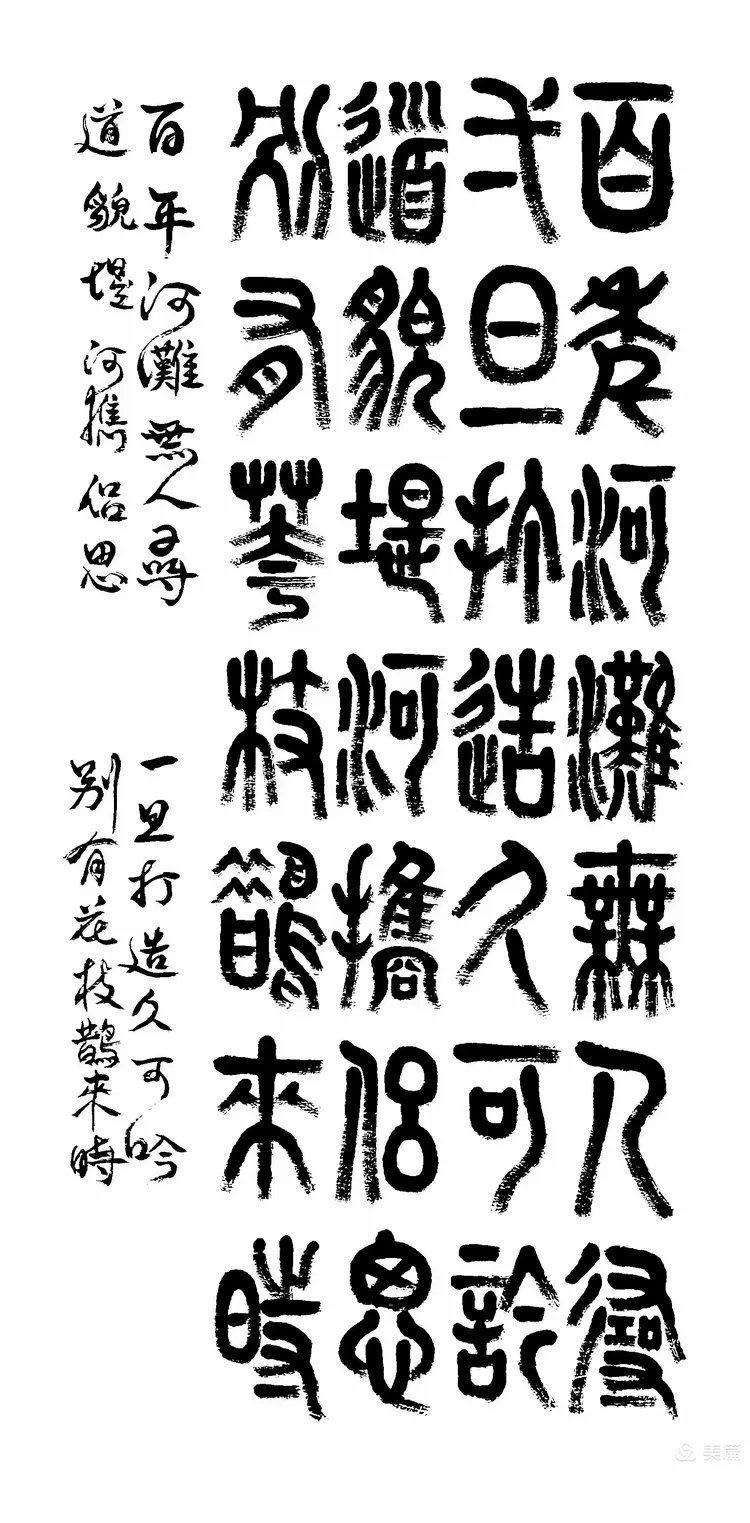 百年河灘無人尋
弌旦打造久可訡
道貌堤河攜侶思
別有花枝鵲來時
百年河灘無人尋
一旦打造久可吟
道貌堤河攜侶思
别有花枝鵲來時
美篇